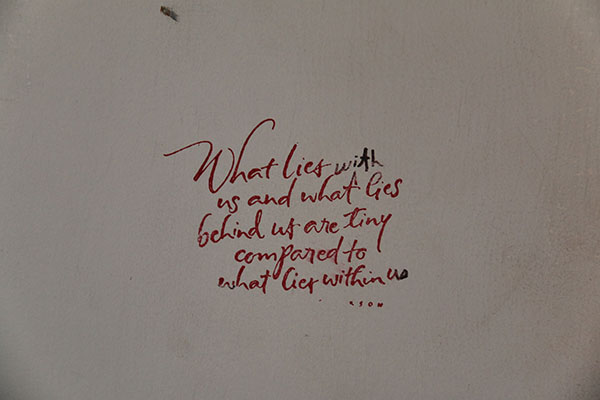 What lies with
us and what lies
behind us are tiny
compared to
what lies within us